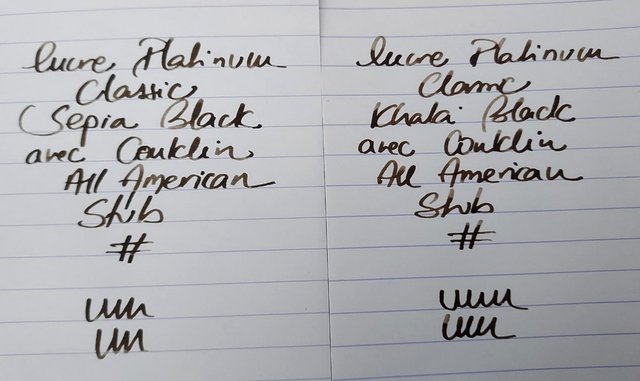 Encre Platinum
Classic
Sepia Black
avec Conklin
All American
Stub
#
Encre Platinum
Classic
Khaki Black
avec Conklin
All American
Stub
#